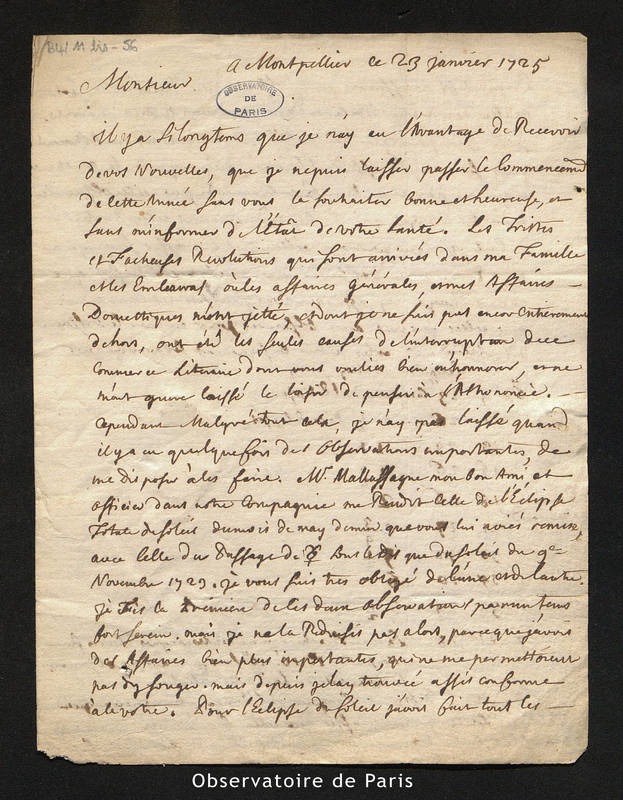 B4/11 bis - 56
a Montpellier ce 23 janvier 1725
Monsieur
OBSERVATOIRE
DE
PARIS
il y a si longtems que je n'ay eu l'avantage de Recevoir
de vos Nouvelles, que je ne puis laisser passer le Commencement
de cette Année sans vous la souhaiter bonne et heureuse, et
sans m'informer de l'Etat de votre santé. Les Tristes
et Facheuses Revolutions qui sont arrivées dans ma Famille
et les Embarras où les affaires générales, et mes Affaires
Domestiques m'ont jetté, et dont je ne suis pas encor entierement
dehors, ont été les seules causes de l'interruption de ce
Commerce Literaire dont vous vouliés bien m'honnorer, et ne
m'ont guere laissé le loisir de penser a l'Astronomie.
Cependant Malgré tout cela, je n'ay pas laissé quand
il y a eu quelque fois des Observations importantes, de
me disposer à les faire. Mr. mon bon Ami et
officier dans notre Compagnie me Rendit Celle de l'Eclipse
Totale du soleil du mois de may dernier que vous lui aviés remise,
avec Celle du Passage de ☿ sous le Disque du soleil du 9e
Novembre 1723. je vous suis tres obligé de l'une et de l'autre.
je fis la premiere de ces deux Observations par un tems
fort serein. mais je ne la Reduisis pas alors, parce que j'avois
des Affaires bien plus importantes, qui ne me permettoient
pas d'y songer. mais depuis je l'ay trouvée assés conforme
a la votre. Pour l'Eclipse du soleil j'avois fait tout les
Observatoire de Paris